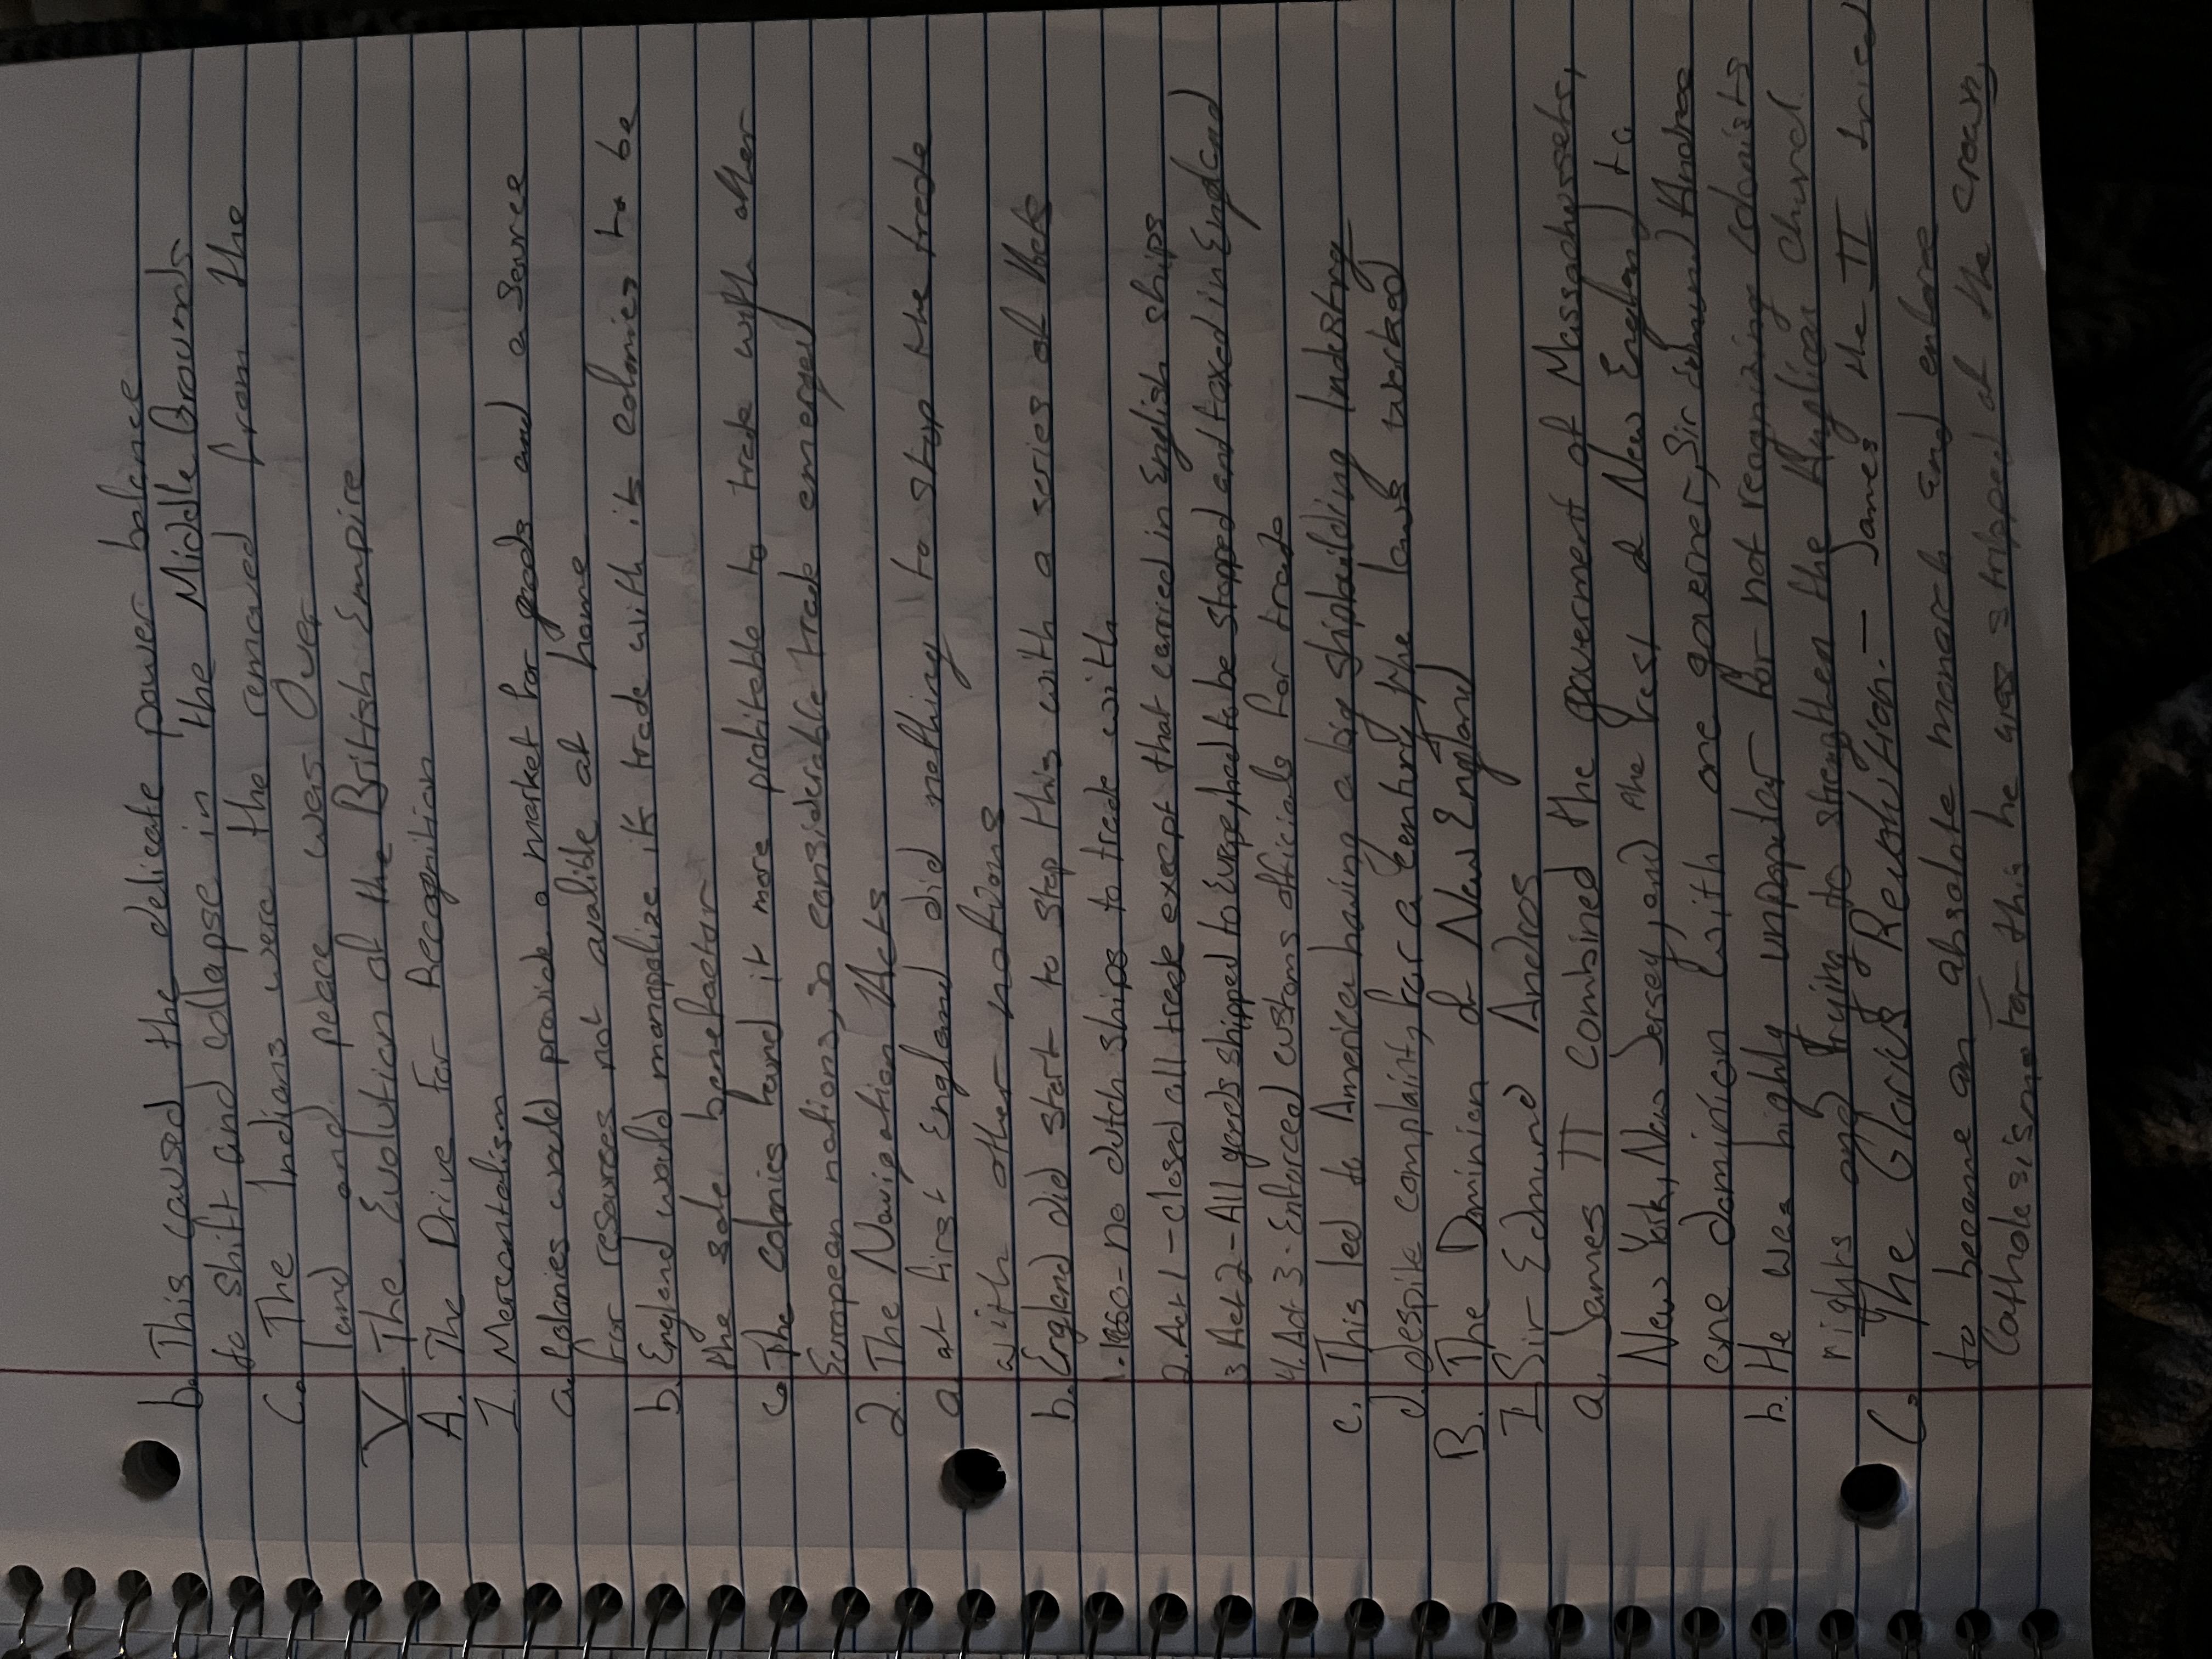 b. This caused the delicate power balance
to shift and collapse in the Middle Grounds
C. The Indians were the removed from the
land and peace was Over
V The Evolution of the British Empire
A. The Drive For Recognition
1. Mercantalism
a. Colonies would provide a market for goods and a source
for resources not avalible at home
b. England would monopolize it's trade with it's colonies to be
the sole benefactor
c. The colonies found it more profitable to trade with other
European nations, so considerable trade emerged
2. The Navigation Acts
a. at first England did nothing to stop the trade
with other nations
b. England did start to stop this with a series of Acts
1. 1650 - no dutch ships to trade with
2. Act 1 - closed all trade except that carried in English ships
3 Act 2 - All goods shipped to Europe, had to be stopped and taxed in England
4. Act 3 - Enforced customs officials for trade
c. This led to America having a big shipbuilding Industry
d. despite complaints, for a century the laws worked
B. The Dominion of New England
I Sir Edmund Andros
a. James II combined the government of Massachusets,
New York, New Jersey, and the rest of New England to
one dominion with one governer, Sir Edmund Andros
b. He was highly unpopular for not recognizing Colonists
rights and trying to strengthen the Anglican church
C. The Glorius Revolution. - James the II tried
to become an absolute monarch and enforce
Catholosism. For this he was stripped of the crown,